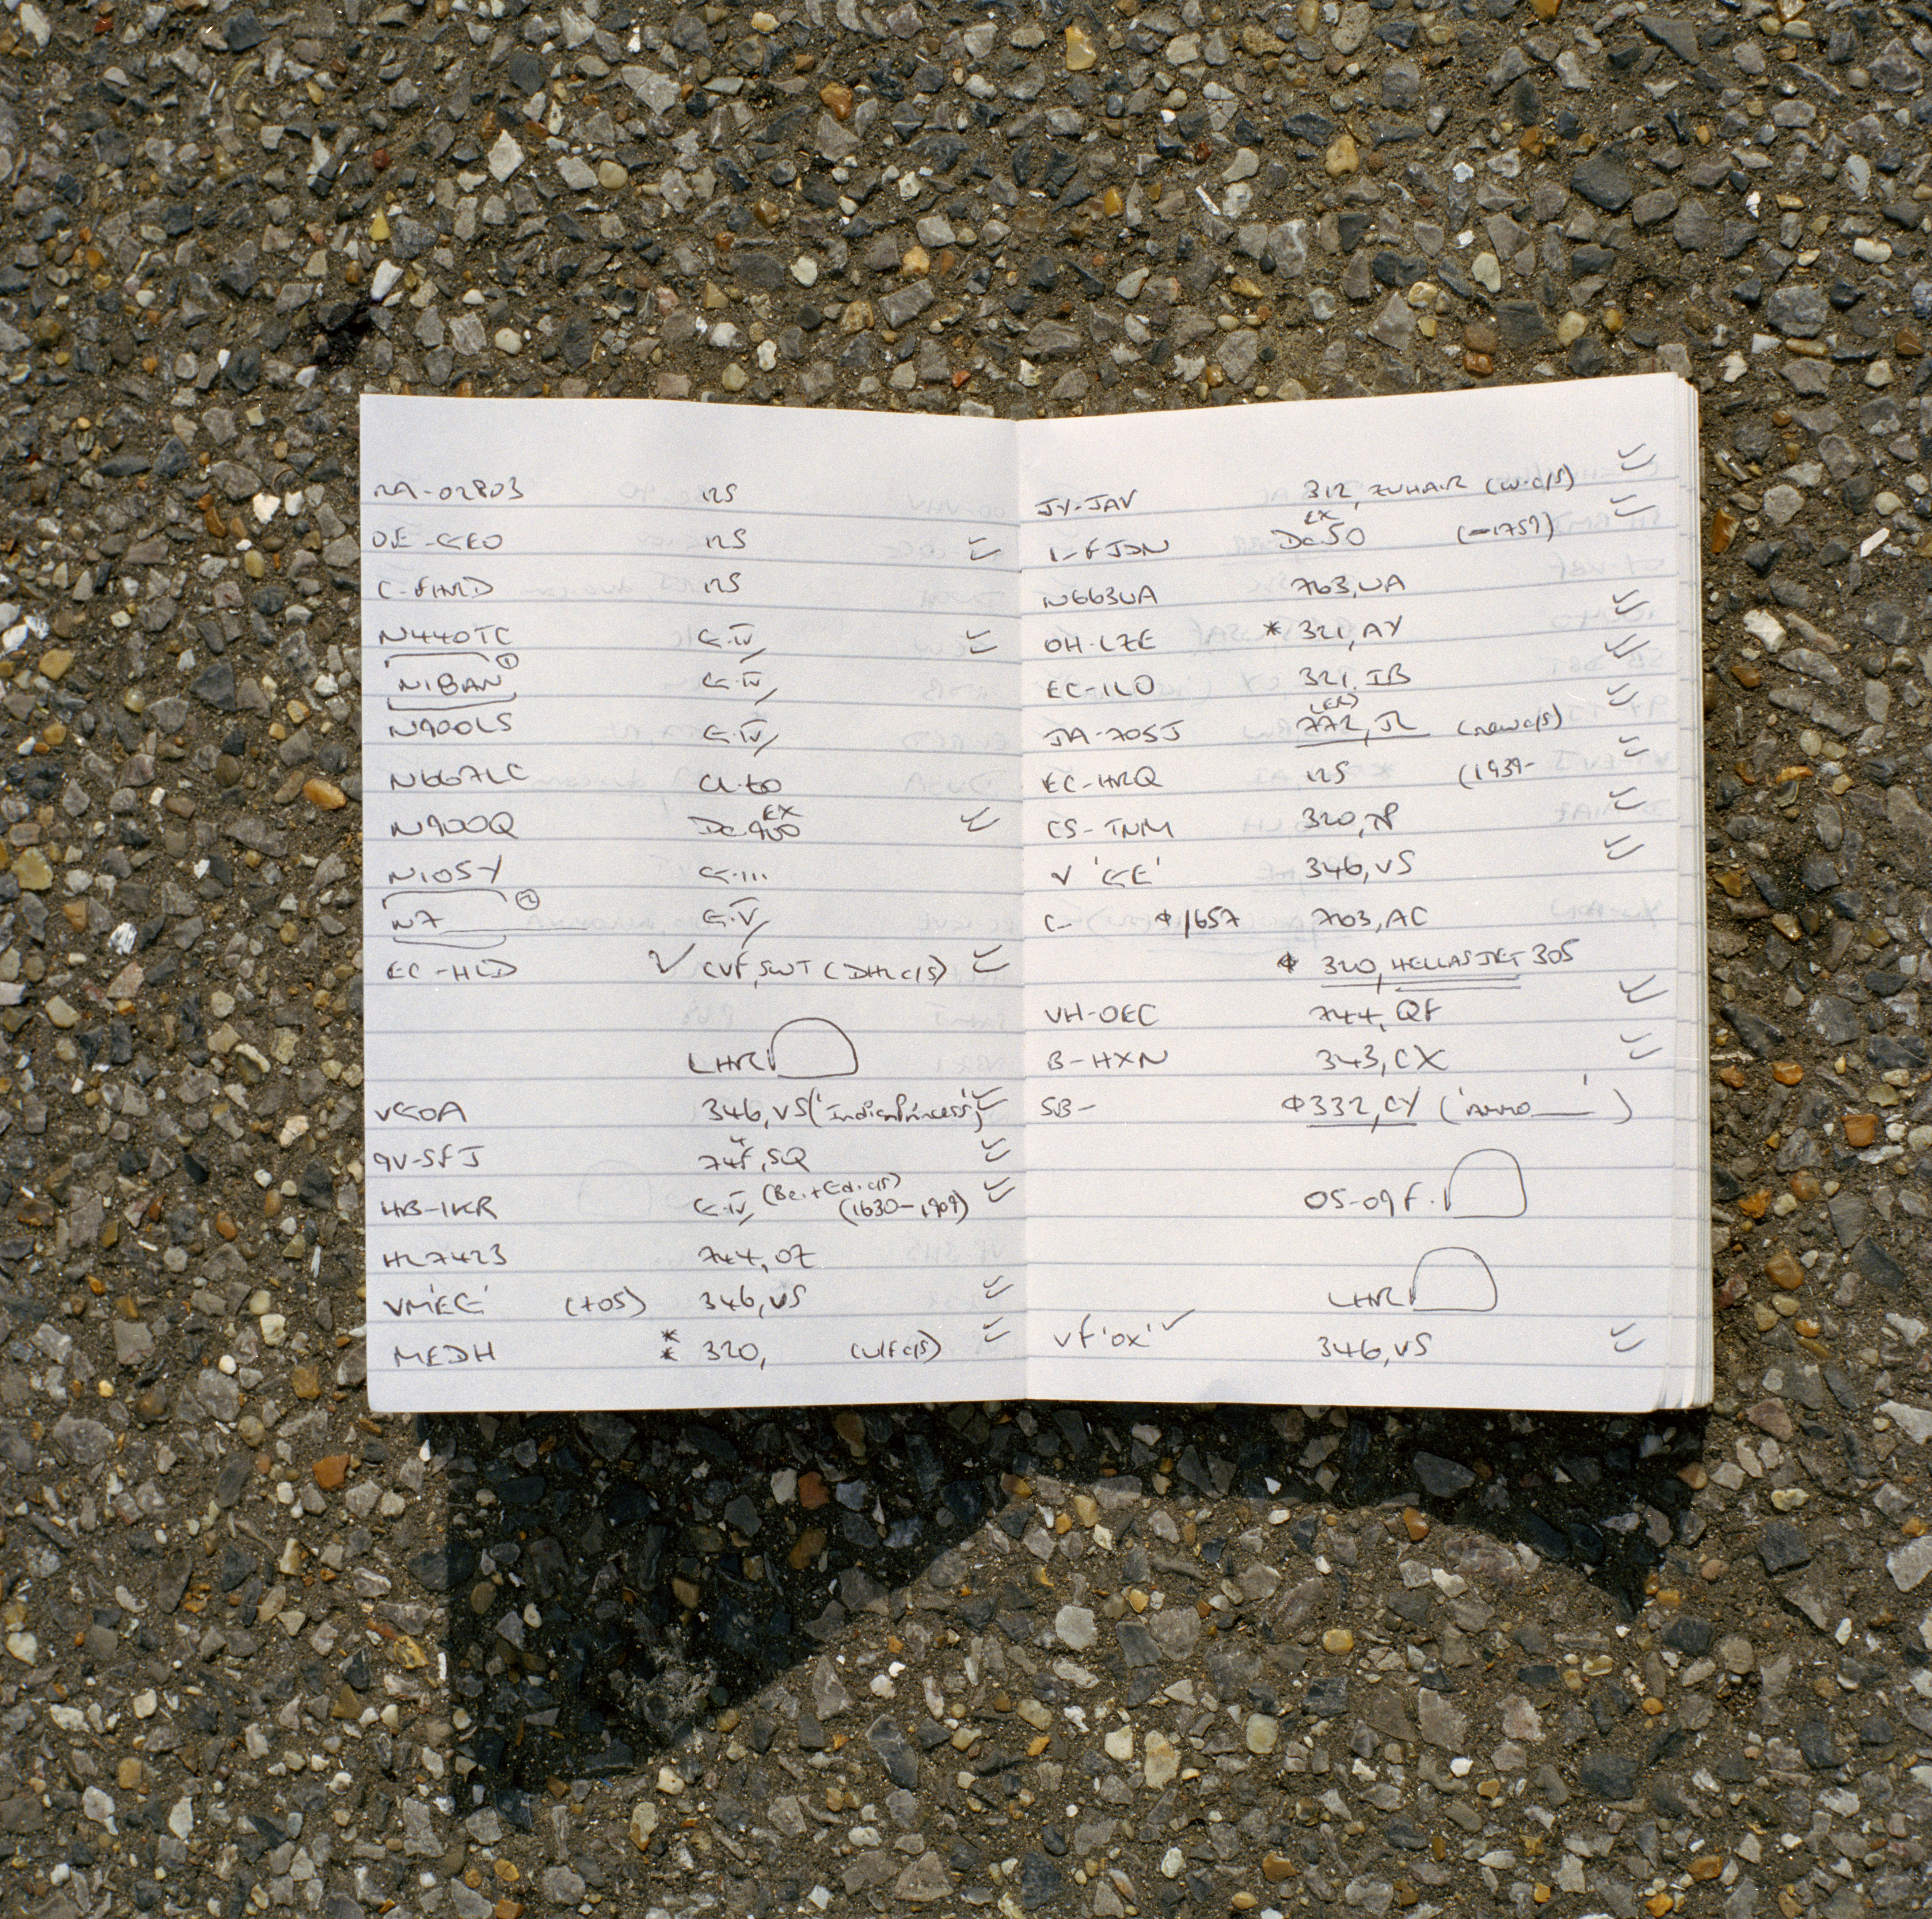 RA-02803 125
OE-GEO 125
C-FHRD 125
N440TC G.IV
N18AN ① G.IV
N900LS G.IV
N667LC CL.60
N900Q Da.900 EX
N105Y G...
N7 ② G.V
EC-HLD ✓ CVF, SWT (DHL c/s)
LHR
VGOA 346, VS ('Indian Princess')
9V-SFJ 74F, SQ
HB-IKR G.IV (Be.+Ed. c/s) (1630-1909)
HL7423 744, OZ
VM'EG' (+05) 346, VS
MEDH ** 320, (U/F c/s)
JY-JAV 312, ZUHAIR (w. c/s)
I-FJDN Da.50 EX (-1759)
N663UA 763, UA
OH-LZE * 321, AY
EC-ILO 321, IB
JA-705J 772, JL (ER) (new c/s)
EC-HRQ 125 (1939-
CS-TNM 320, TP
V 'GE' 346, VS
C- 1657 763, AC
320, HELLASJET 305
VH-OEC 744, QF
B-HXN 343, CX
5B- 332, CY (' ')
05-09F.
LHR
VF'OX' ✓ 346, VS